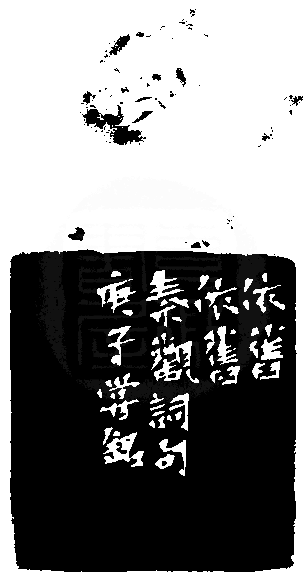 依舊
依舊
秦觀詞句
庚子銘